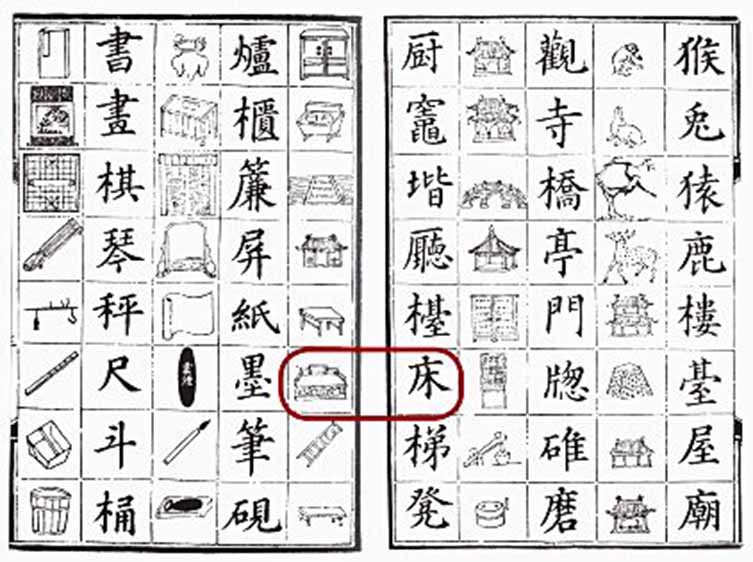 猴兔猿鹿樓臺屋廟
觀寺橋亭門牕碓磨
厨竈堦廳檯床梯凳
爐櫃簾屏紙墨筆硯
書畫棋琴秤尺斗桶